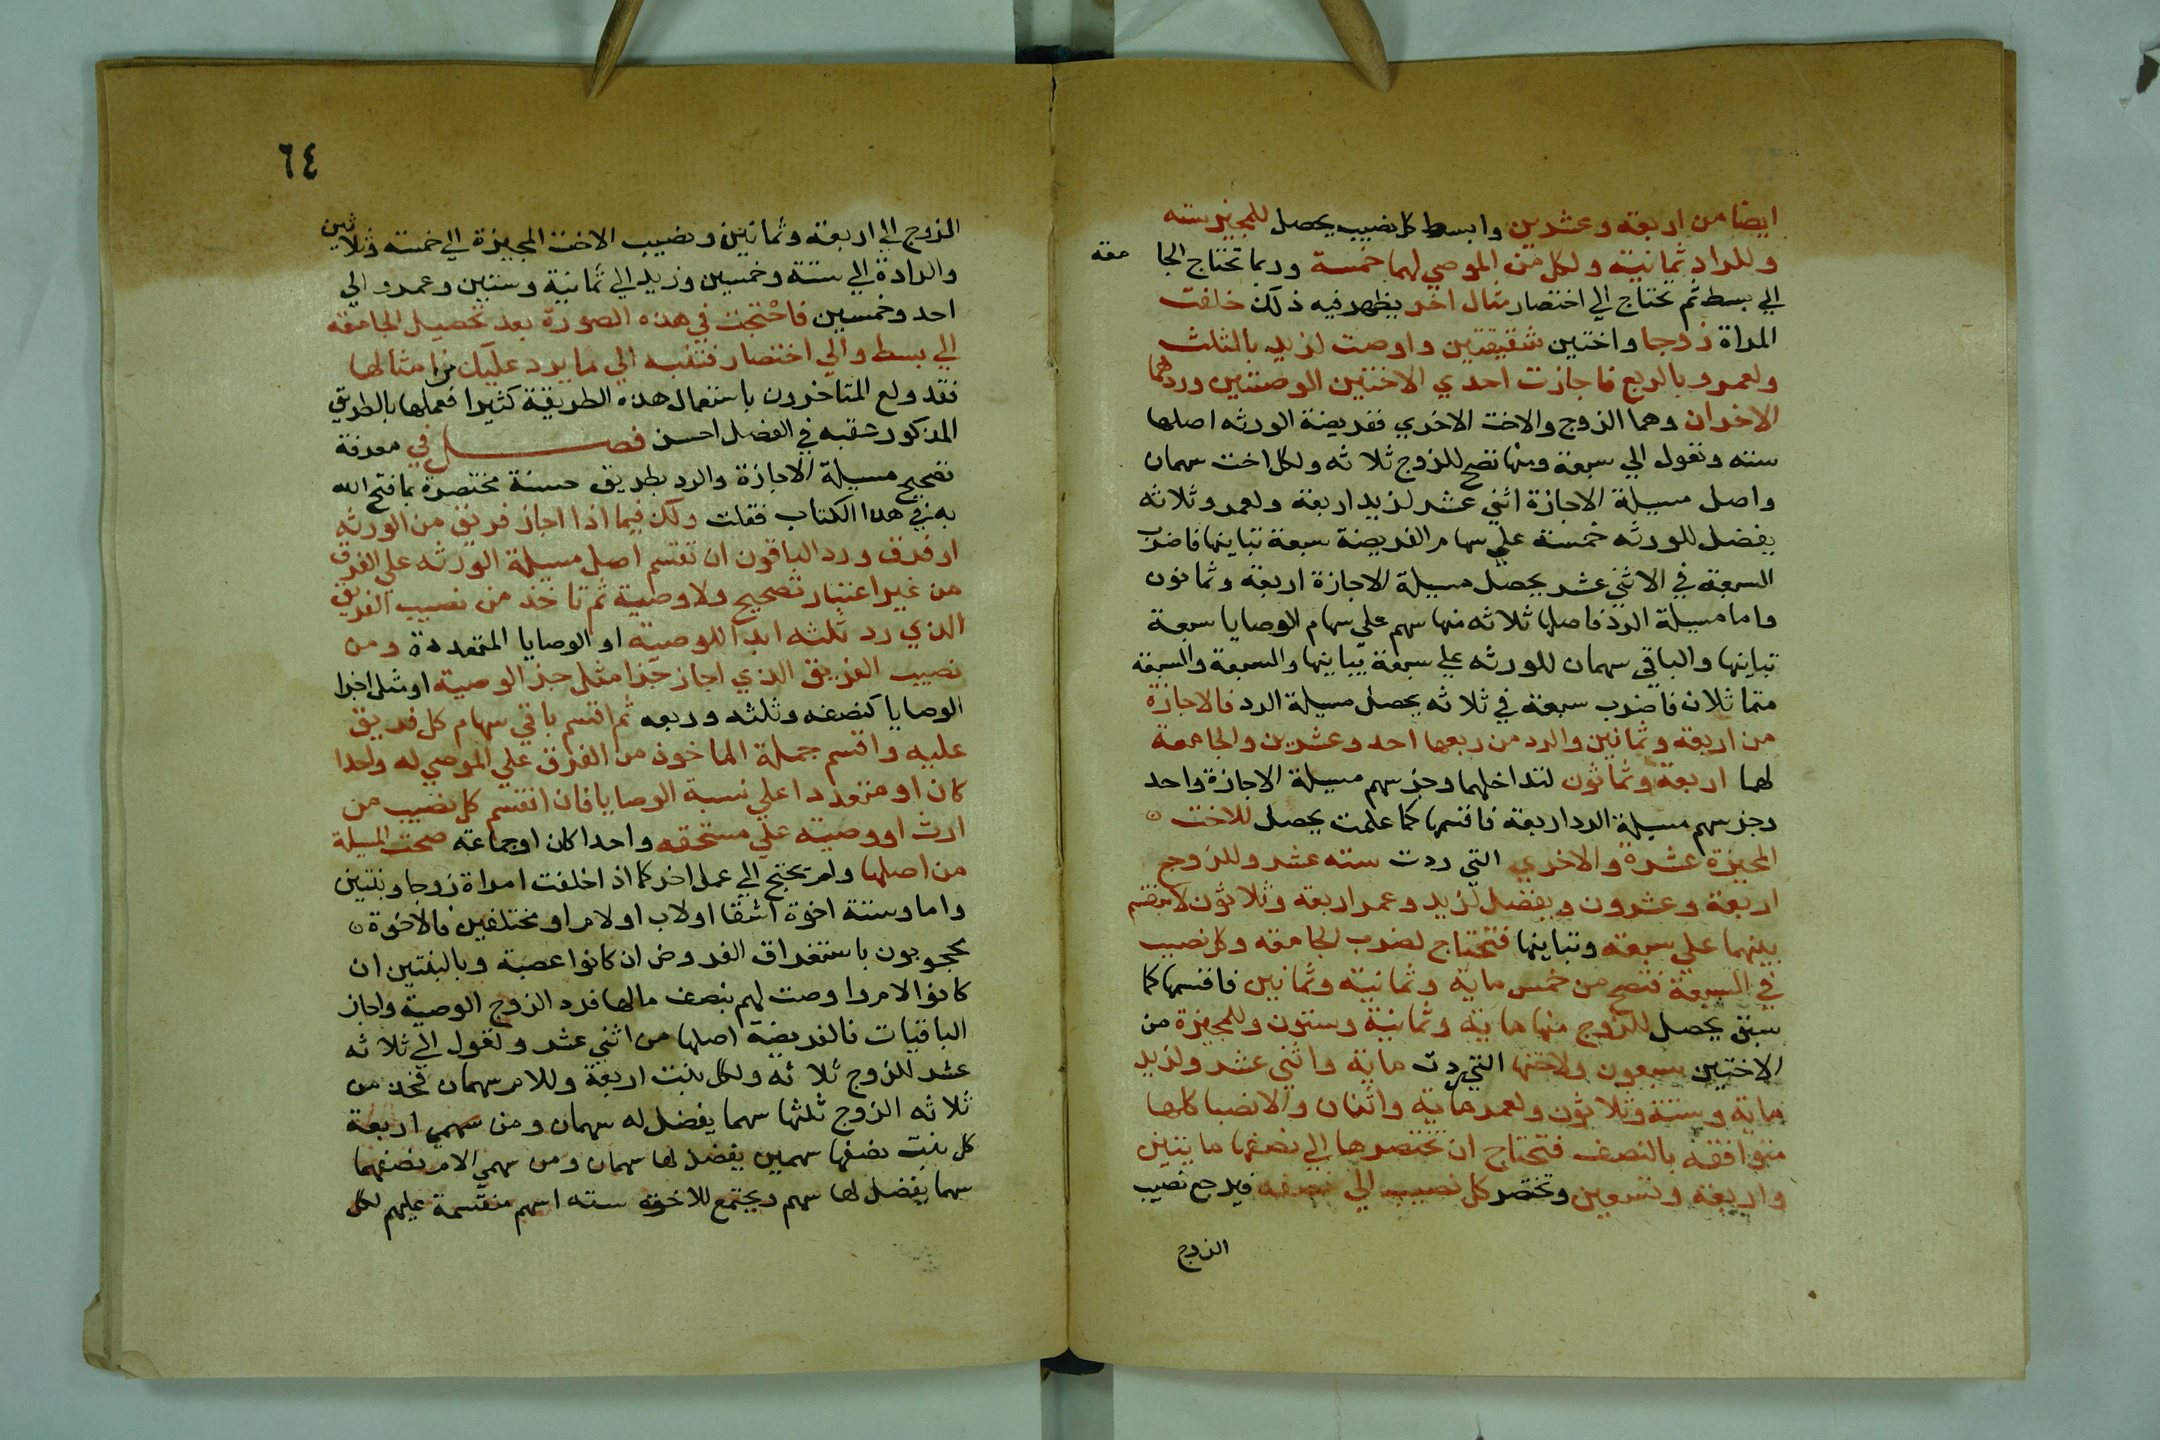 ايضا من اربعة وعشرين وابسط كل نصيب يحصل للمجيز سته
وللراد ثمانية ولكل من الموصي لهما خمسة وربما تحتاج الجامعه
الي بسط ثم تحتاج الي اختصار مثال اخر يظهر فيه ذلك خلفت
المراة زوجا واختين شقيقتين واوصت لزيد بالثلث
ولعمرو بالربع فاجازت احدي الاختين الوصيتين وردهما
الاخران وهما الزوج والاخت الاخري ففريضة الورثه اصلها
سته وتعول الي سبعة ومنها تصح للزوج ثلاثه ولكل اخت سهمان
واصل مسيلة الاجازة اثني عشر لزيد اربعة ولعمرو ثلاثه
يفضل للورثه خمسة علي سهام الفريضة سبعة تباينها فاضرب
السبعة في الاثني عشر يحصل مسيلة الاجازة اربعة وثمانون
واما مسيلة الرد فاصلها ثلاثه منها سهم علي سهام الوصايا سبعة
تباينها والباقي سهمان للورثه علي سبعة يباينها والسبعة والسبعه
متماثلان فاضرب سبعة في ثلاثه يحصل مسيلة الرد فالاجازة
من اربعة وثمانين والرد من ربعها احد وعشرين والجامعة
لهما اربعة وثمانون لتداخلهما وجز سهم مسيلة الاجازة واحد
وجز سهم مسيلة الرد اربعة فاقسمها كما علمت يحصل للاخت
المجيزة عشرة والاخري التي ردت سته عشر وللزوج
اربعة وعشرون ويفضل لزيد وعمر اربعة وثلاثون لا تنقسم
بينهما علي سبعة وتباينها فتحتاج لضرب الجامعه وكل نصيب
في السبعة فتصح من خمس ماية وثمانية وثمانين فاقسمها كما
سبق يحصل للزوج منها ماية وثمانية وستون وللمجيزة من
الاختين سبعون ولاختها التي ردت ماية واثني عشر ولزيد
ماية وستة وثلاثون ولعمر ماية واثنان والانصبا كلها
متوافقة بالنصف فتحتاج ان تختصرها الي نصفها مايتين
واربعة وتسعين وتختصر كل نصيب الي نصفه فيرجع نصيب
الزوج
٦٤
الزوج الي اربعة وثمانين ونصيب الاخت المجيزة الي خمسة وثلاثين
والرادة الي ستة وخمسين وزيد الي ثمانية وستين وعمرو الي
احد وخمسين فاحتجت في هذه الصورة بعد تحصيل الجامعة
الي بسط والي اختصار فتنبه الي ما يرد عليك من امثالها
فقد ولع المتاخرون باستعمال هذه الطريقة كثيرا فعملها بالطريق
المذكور عقبه في الفصل احسن فصل في معرفة
تصحيح مسيلة الاجازة والرد بطريق حسنة مختصرة بما فتح الله
به في هذا الكتاب فقلت ولك فيما اذا اجاز فريق من الورثه
او فرق ورد الباقون ان تقسم اصل مسيلة الورثه علي الفرق
من غير اعتبار تصحيح ولا وصية ثم تاخذ من نصيب الفريق
الذي رد ثلثه ابدا للوصية او الوصايا المتعددة ومن
نصيب الفريق الذي اجاز جزا مثل جز الوصية او مثل اجزا
الوصايا كنصفه وثلثه وربعه ثم اقسم باقي سهام كل فريق
عليه واقسم جملة الماخوذ من الفرق علي الموصي له واحدا
كان او متعددا علي نسبة الوصايا فان انقسم كل نصيب من
ارث او وصية علي مستحقه واحدا كان او جماعة صحت المسيلة
من اصلها ولم يحتج الي عمل اخر كما اذا خلفت امراة زوجا وبنتين
واما وستة اخوة اشقا اولاب اولام او مختلفين فالاخوة
محجوبون باستغراق الفروض ان كانوا عصبة وبالبنتين ان
كانوا لام واوصت لهم بنصف مالها فرد الزوج الوصية واجاز
الباقيات فالفريضة اصلها من اثني عشر وتعول الي ثلاثه
عشر للزوج ثلاثه ولكل بنت اربعة وللام سهمان فخذ من
ثلاثه الزوج ثلثها سهما يفضل له سهمان ومن سهمي اربعة
كل بنت نصفها سهمين يفضل لها سهمان ومن سهمي الام نصفهما
سهما يفضل لها سهم ويجتمع للاخوة سته اسهم منقسمة عليهم لكل